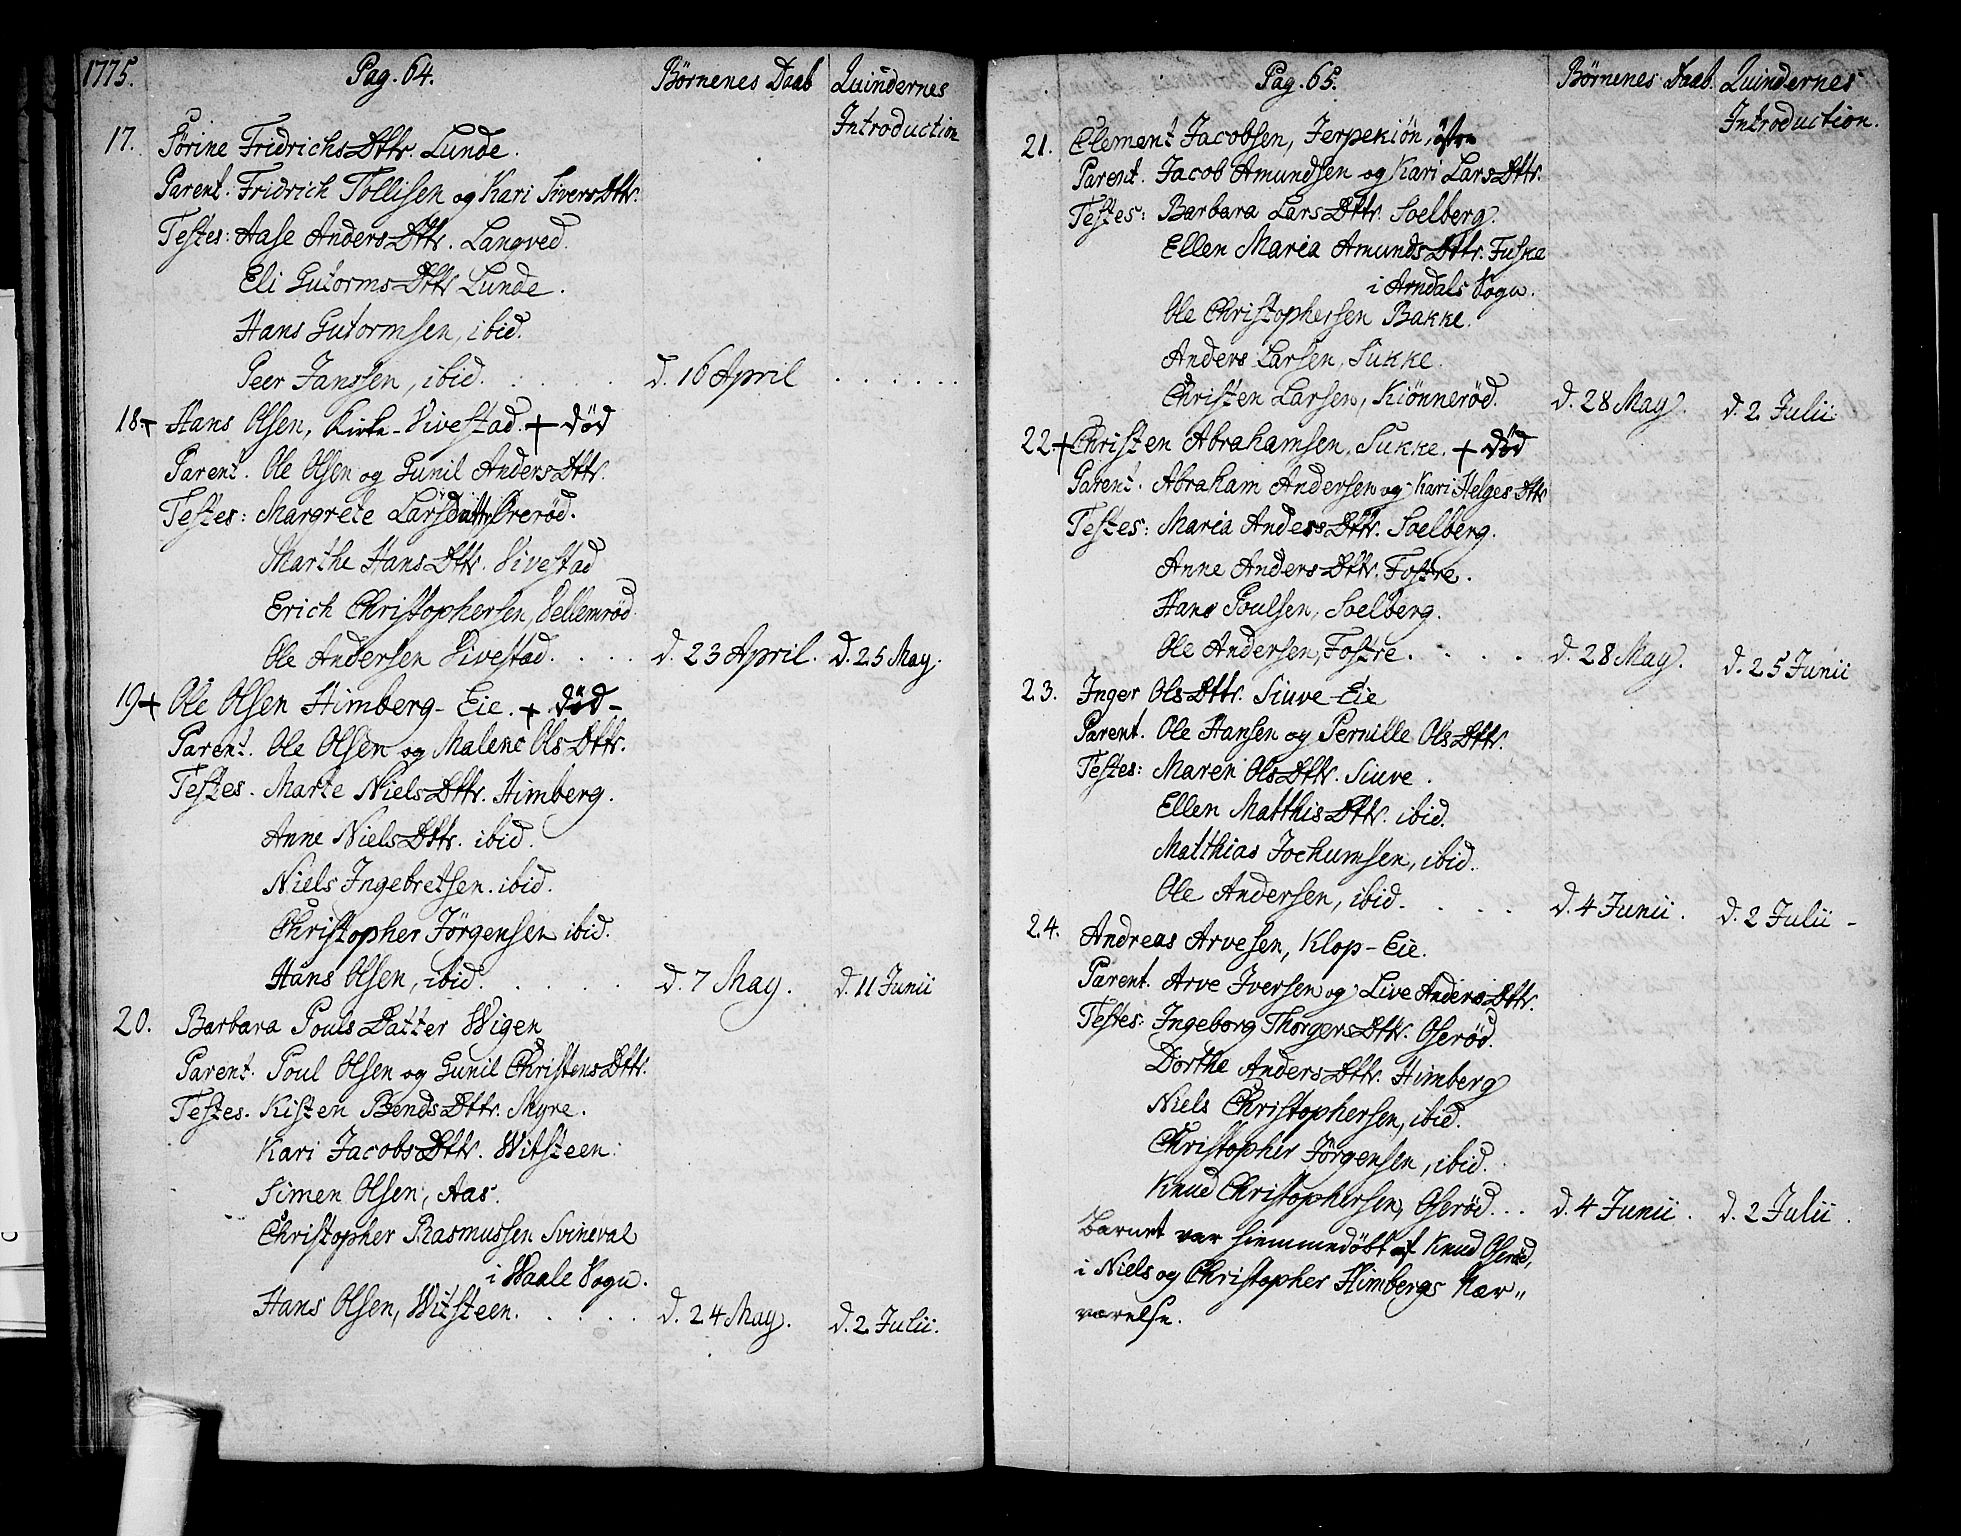 1775.
Pag. 64.
Börnenes Daab
Quindernes
Introduction
17. Sörine Fridrichs Dttr. Lunde.
Parent. Fridrich Tollisen og Kari Sivers Dttr.
Testes: Aase Anders Dttr. Langved.
Eli Gutorms Dttr Lunde.
Hans Gutormsen, ibid.
Peer Janssen, ibid. . . . . d. 16 April . . . . . .
18 + Hans Olsen, Kirke-Vivestad. + död
Parent. Ole Olsen og Gunil Anders Dttr.
Testes: Margrete Larsdattr Öreröd.
Marthe Hans Dttr. Vivestad
Erich Christophersen, Vellemröd.
Ole Andersen Vivestad. . . . d. 23 April. d. 25 May.
19 + Ole Olsen Himberg-Eie. + död-
Parent. Ole Olsen og Malene Ols Dttr.
Testes. Marte Niels Dttr. Himberg.
Anne Niels Dttr. ibid.
Niels Ingebretsen. ibid.
Christopher Jörgensen ibid.
Hans Olsen, ibid. . . . . d. 7 May. d. 11 Junii
20. Barbara Pouls Datter Wigen
Parent. Poul Olsen og Gunil Christens Dttr.
Testes. Kisten Bends Dttr. Myre.
Kari Jacobs Dttr. Witsteen:
Simen Olsen, Aas.
Christopher Rasmussen Svineval
i Waale Sogn.
Hans Olsen, Witsteen. . . . . d. 24 May. d. 2 Julii.
Pag. 65.
Börnenes Daab.
Quindernes
Introduction.
21. Clement Jacobsen, Jerpekiön, östre
Parent. Jacob Amundsen og Kari Lars Dttr.
Testes: Barbara Lars Dttr. Soelberg.
Ellen Maria Amunds Dttr. Fuske
i Arndals Sogn.
Ole Christophersen Bakke.
Anders Larsen, Sukke.
Christen Larsen, Kiönneröd. d. 28 May. d. 2 Julii
22 + Christen Abrahamsen, Sukke. + död
Parent. Abraham Andersen og Kari Helges Dttr
Testes: Maria Anders Dttr. Soelberg.
Anne Anders Dttr. Fostre.
Hans Poulsen, Soelberg.
Ole Andersen, Fostre. . . . . d. 28 May. d. 25 Junii
23. Inger Ols Dttr. Siuve-Eie
Parent. Ole Hansen og Pernille Ols Dttr.
Testes: Maren Ols Dttr. Siuve.
Ellen Matthis Dttr. ibid.
Matthias Jochumsen, ibid.
Ole Andersen, ibid. . . . d. 4 Junii. d. 2 Julii -
24. Andreas Arvesen, Klop-Eie.
Parent. Arve Iversen og Live Anders Dttr.
Testes: Ingeborg Thorgers Dttr. Oseröd.
Dorthe Anders Dttr. Himberg
Niels Christophersen, ibid.
Christopher Jörgensen, ibid.
Knud Christophersen, Oseröd. . . d. 4 Junii. d. 2 Julii.
Barnet var hiemmedöbt af Knud Oseröd,
i Niels og Christopher Himbergs Nær"
værelse.